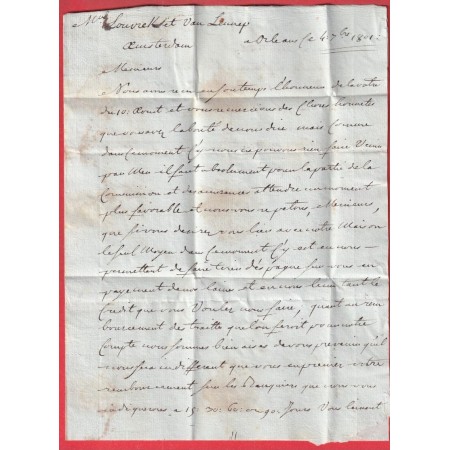 Mrs Louvrell et Van Lennep
a Orleans Le 4. 7bre 1801.
Amsterdam
Messieurs
Nous avons reçu en son temps l'honneur de la votre
du 10: Aout et vous remercions des Choses honnetes
que vous avez la bonté de nous dire, mais Comme
dans ce moment Cy nous ne pouvons rien faire
il faut absolument pour la partie de la
Commission et des assurances attendre un moment
plus favorable et nous vous repetons, Messieurs,
que si vous desirez vous lier avec notre Maison
le seul Moyen dans ce moment Cy est en nous
permettant de faire tirer d'Espagne sur vous en
payement de nos laines et en nous limitant le
Credit que vous Voulez nous faire, quant au rem
boursement des traites que l'on feroit pour notre
Compte nous sommes bien aises de vous prevenir qu'il
nous sera indifferent que vous en preniez votre
remboursement sur les Banquiers que nous vous
indiquerons a 15. 30. 60: ou 90. Jours Vous laissant